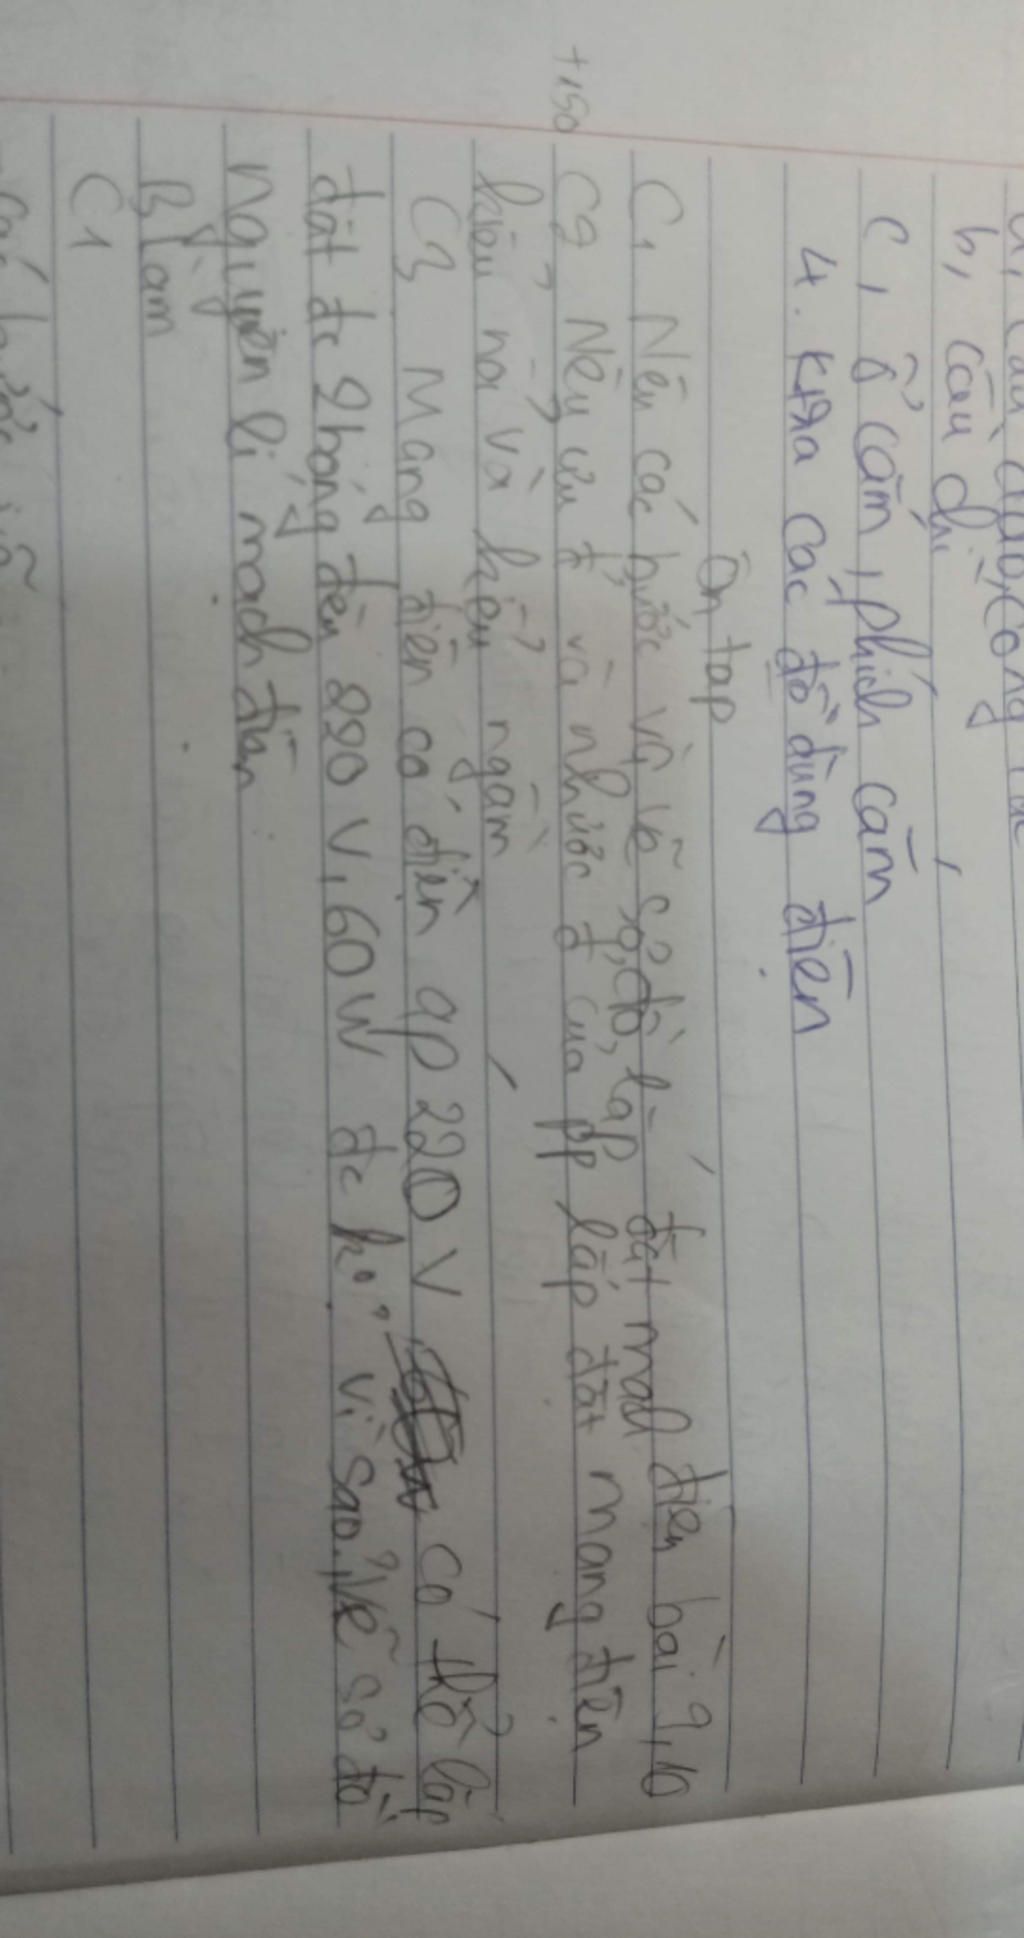 b, cầu chì
c, ổ cắm, phích cắm
4. Ktra các đồ dùng điện
Ôn tập
C1 Nêu các bước vẽ, vẽ sơ đồ, lắp đặt mạch điện bài 9, 10
C2 Nêu ưu đ và nhược đ của pp lắp đặt mạng điện
kiểu nổi và kiểu ngầm
C3 Mạng điện có điện áp 220 V có thể lắp
đặt đc 2 bóng đèn 220 V, 60W đc ko? vì sao? Vẽ sơ đồ
nguyên lí mạch điện
B làm
C1